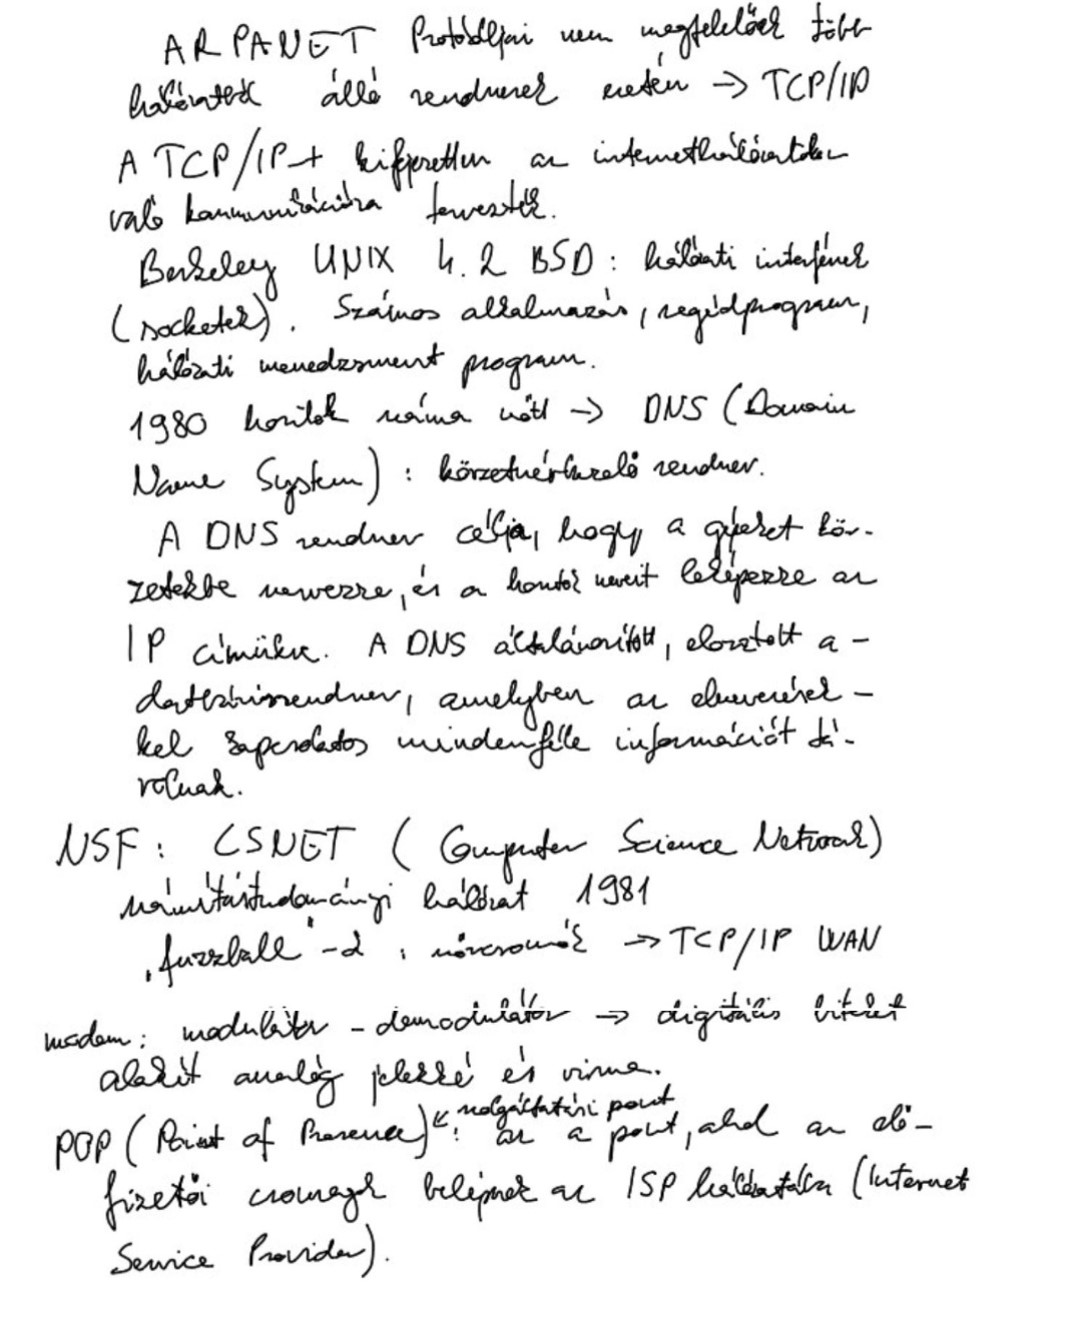 ARPANET Protokolljai nem megfelelőek több
hálózatból álló rendszerek esetén → TCP/IP
A TCP/IP-t kifejezetten az internethálózatokon
való kommunikációra tervezték.
Berkeley UNIX 4.2 BSD: hálózati interfészek
(socketek). Számos alkalmazás, segédprogram,
hálózati menedzsment program.
1980 hosztok száma nőtt → DNS (Domain
Name System): körzetnévkezelő rendszer.
A DNS rendszer célja, hogy a gépeket kör-
zetekbe szervezze, és a hosztok neveit leképezze az
IP címükre. A DNS általánosított, elosztott a-
datbázisrendszer, amelyben az elnevezések-
kel kapcsolatos mindenféle információt tá-
rolnak.
NSF: CSNET (Computer Science Network)
számítástudományi hálózat 1981
„fuzzball"-ok: IP/TCP WAN
modem: modulátor - demodulátor → digitális biteket
alakít analóg jelekké és vissza.
POP (Point of Presence) ↙ szolgáltatási pont : az a pont, ahol az elő-
fizetői csomagok belépnek az ISP hálózatába (Internet
Service Provider).